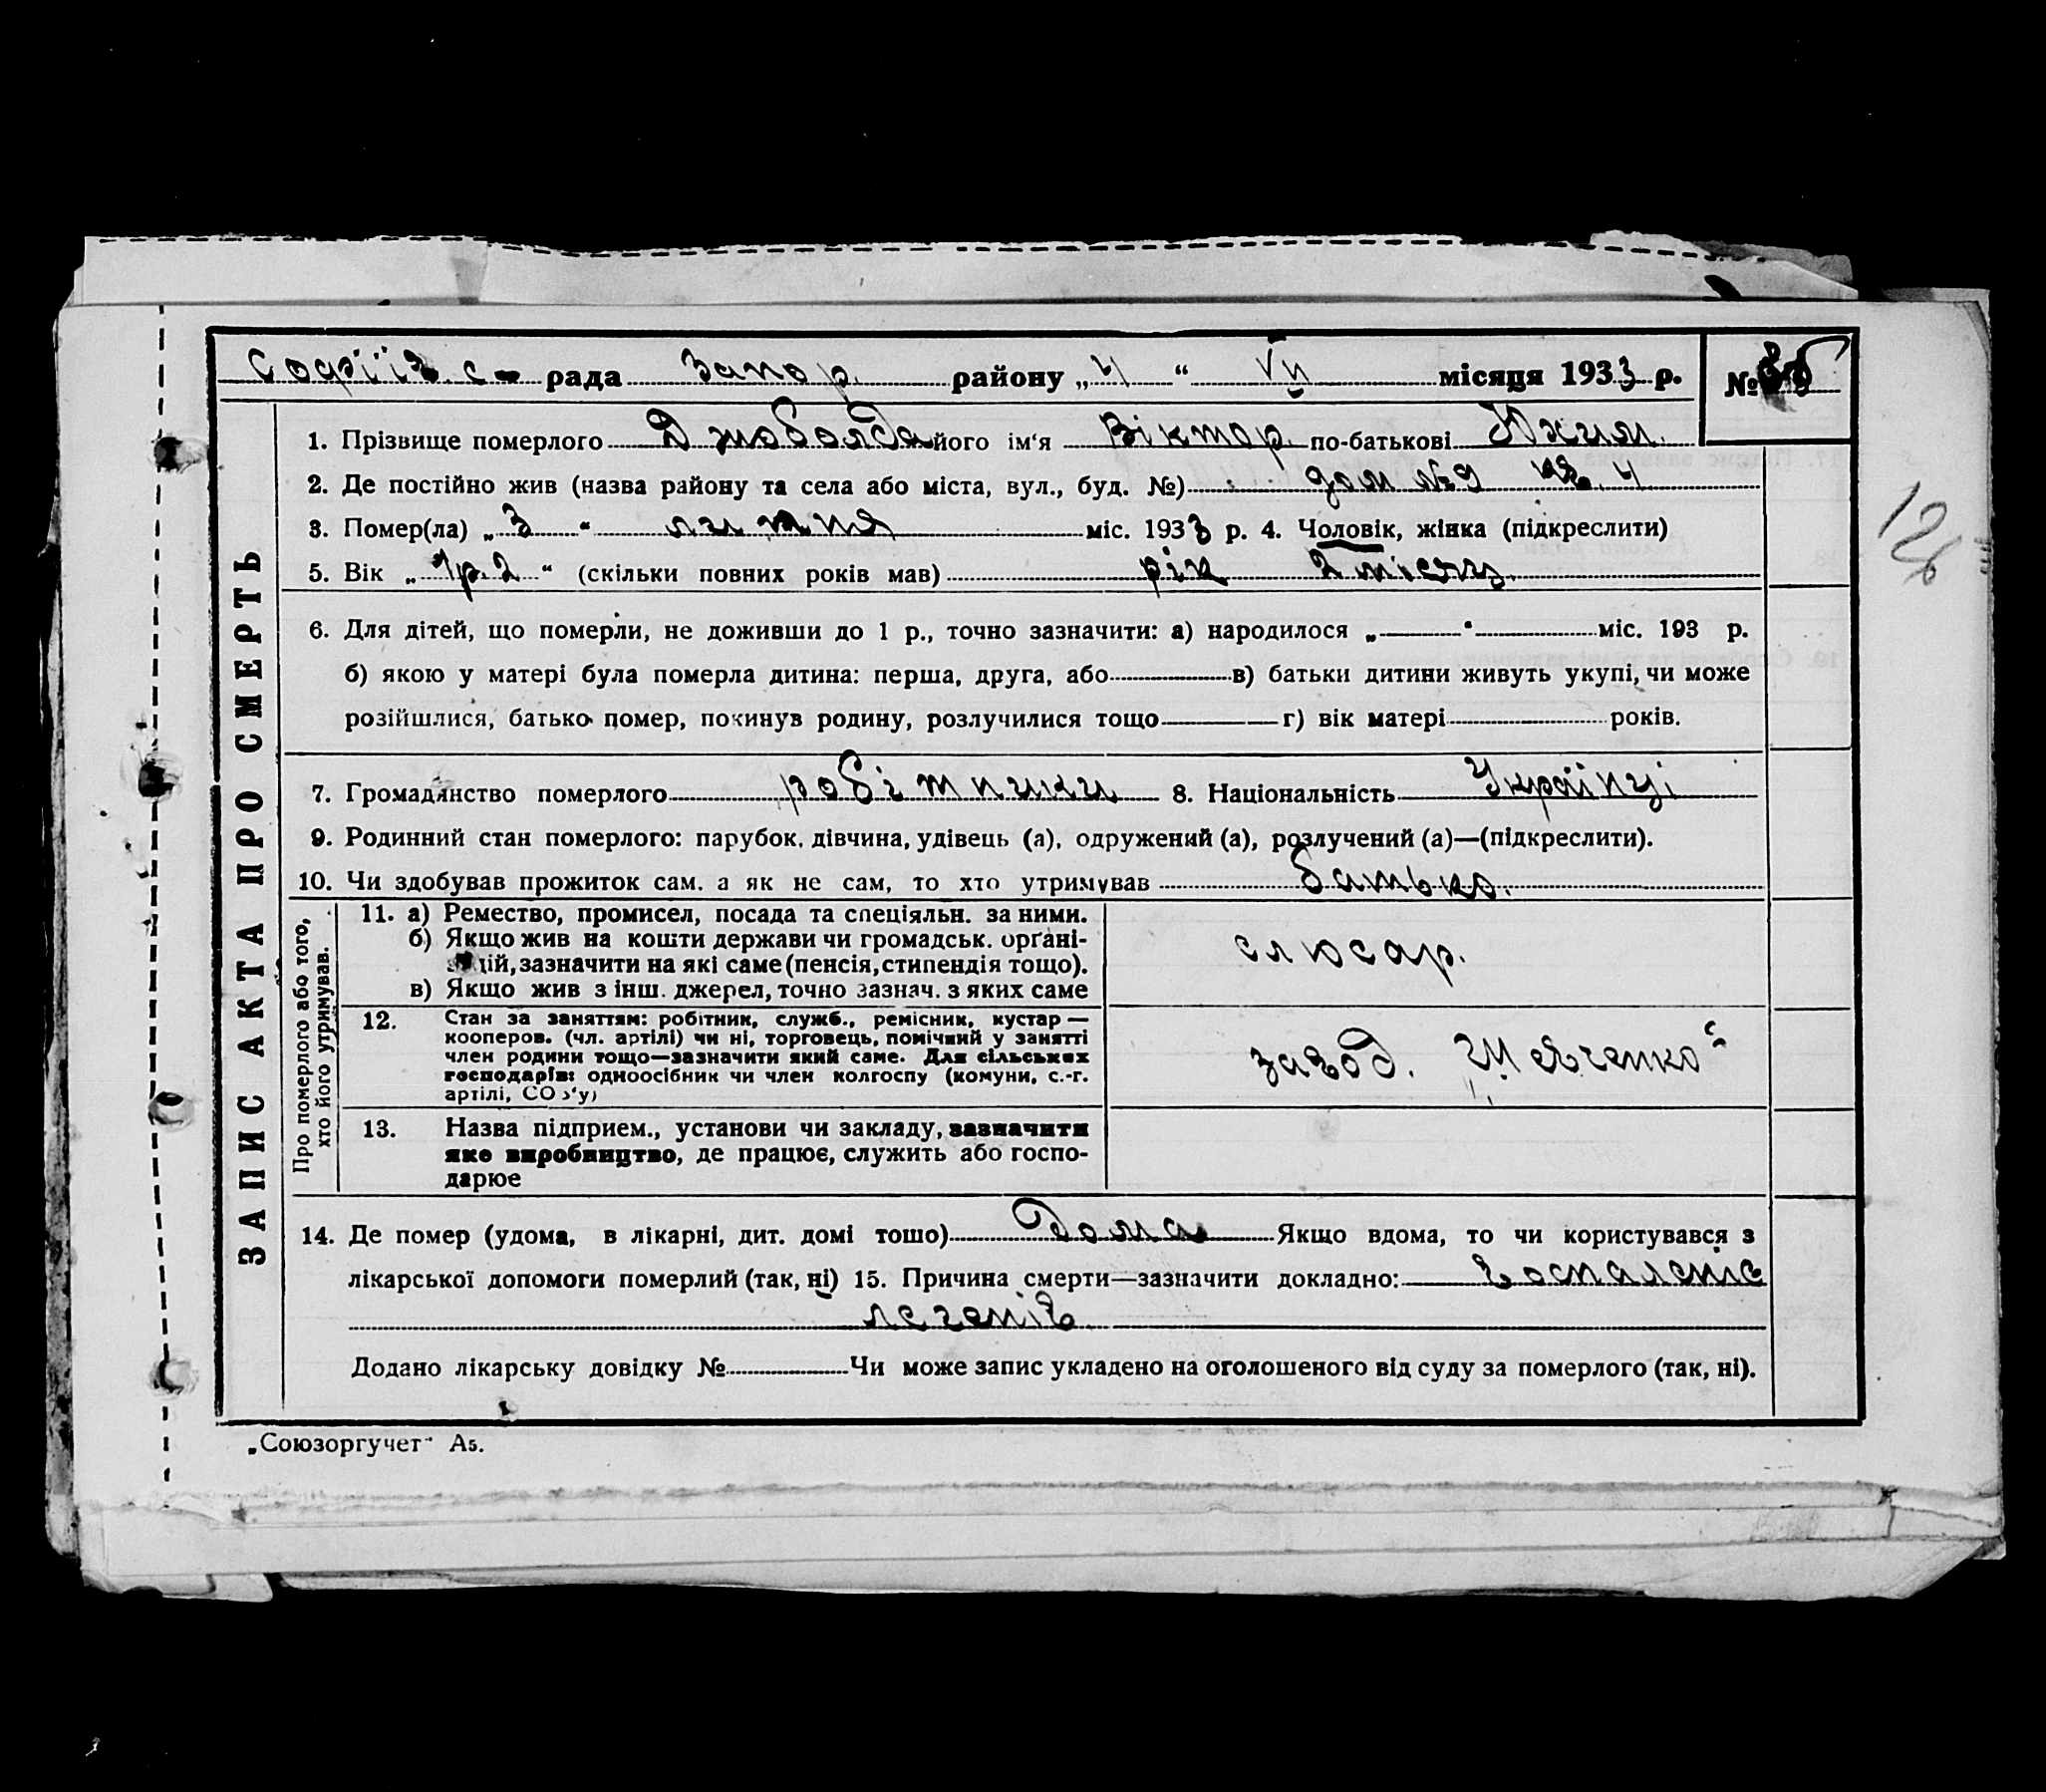 Софіїв. с. рада Запор. району „4“ VII місяця 1933 р. №
ЗАПИС АКТА ПРО СМЕРТЬ
1. Прізвище померлого його ім'я Віктор. по-батькові Юхим.
2. Де постійно жив (назва району та села або міста, вул., буд. №) дом №9 кв. 4
3. Помер(ла) „3“ липня міс. 1933 р. 4. Чоловік, жінка (підкреслити)
5. Вік „1р. 2“ (скільки повних років мав) рік 2 місяц.
126
6. Для дітей, що померли, не доживши до 1 р., точно зазначити: а) народилося „—“ міс. 193 р.
б) якою у матері була померла дитина: перша, друга, або в) батьки дитини живуть укупі, чи може
розійшлися, батько помер, покинув родину, розлучилися тощо г) вік матері років.
7. Громадянство померлого робітники 8. Національність Українці
9. Родинний стан померлого: парубок, дівчина, удівець (а), одружений (а), розлучений (а)—(підкреслити).
10. Чи здобував прожиток сам. а як не сам, то хто утримував батько.
Про померлого або того, хто його утримував.
11. а) Ремество, промисел, посада та спеціяльн. за ними.
б) Якщо жив на кошти держави чи громадськ. орґані-
зацій, зазначити на які саме (пенсія, стипендія тощо).
в) Якщо жив з інш. джерел, точно зазнач. з яких саме
слюсар.
12. Стан за заняттям: робітник, служб., ремісник, кустар —
кооперов. (чл. артілі) чи ні, торговець, помічний у занятті
член родини тощо—зазначити який саме. Для сільських
господарів: одноосібник чи член колгоспу (комуни, с.-г.
артілі, СОЗ'у)
завод. „Шевченко“
13. Назва підприєм., установи чи закладу, зазначити
яке виробництво, де працює, служить або госпо-
дарює
14. Де помер (удома, в лікарні, дит. домі тошо) Дома Якщо вдома, то чи користувався з
лікарської допомоги померлий (так, ні) 15. Причина смерти—зазначити докладно: Воспаленіє
легенів
Додано лікарську довідку № Чи може запис укладено на оголошеного від суду за померлого (так, ні).
„Союзоргучет" А5.